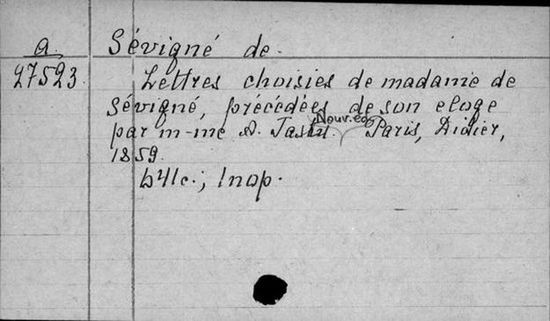 a
27523
Sévigné de.
Lettres choisies de madame de
Sévigné, précédées de son eloge
par m-me A. Tastu. Nouv. ed. Paris, Didier,
1859.
541c.; 1пор.